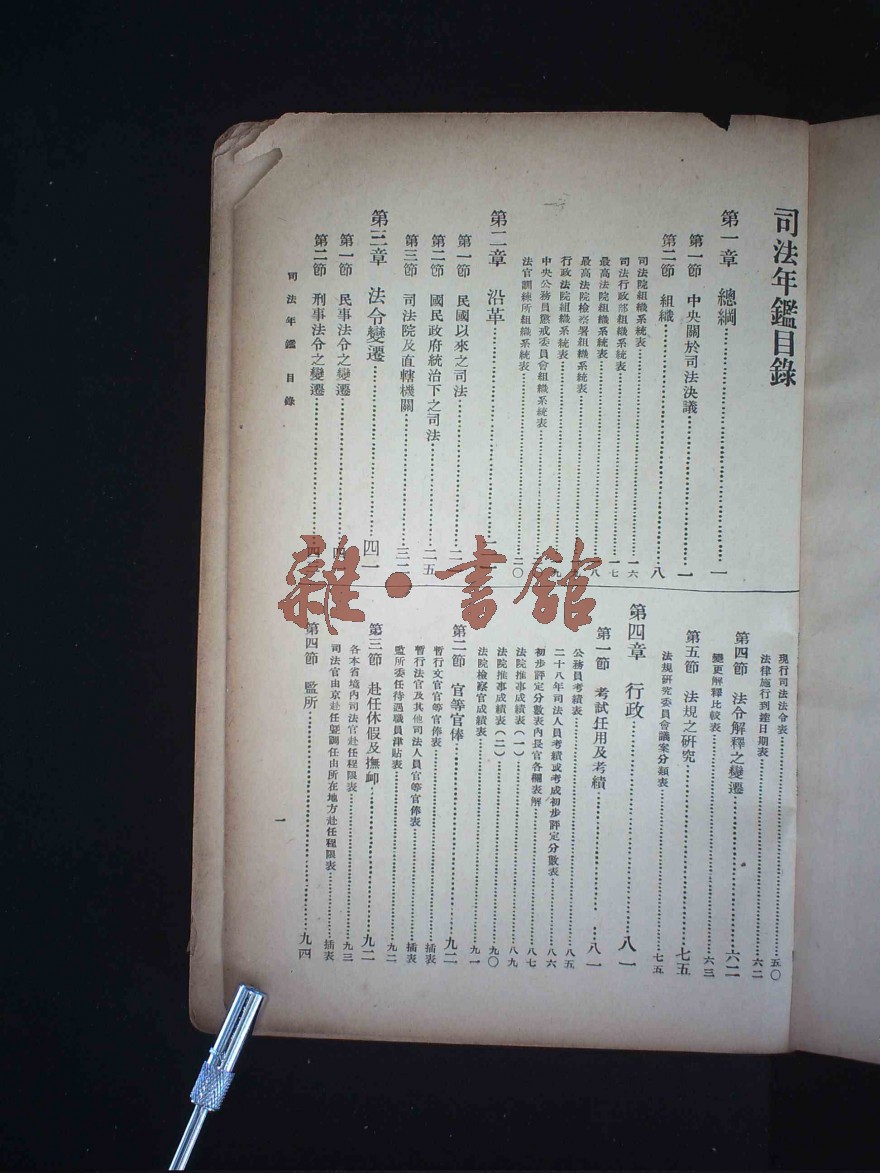 司法年鑑目錄
第一章 總綱 一
第一節 中央關於司法決議 一
第二節 組織 八
司法院組織系統表 一六
司法行政部組織系統表 一七
最高法院組織系統表 一八
最高法院檢察署組織系統表
行政法院組織系統表
中央公務員懲戒委員會組織系統表
法官訓練所組織系統表 二〇
第二章 沿革
第一節 民國以來之司法
第二節 國民政府統治下之司法 二五
第三節 司法院及直轄機關 三二
第三章 法令變遷 四一
第一節 民事法令之變遷 四一
第二節 刑事法令之變遷
現行司法法令表 五〇
法律施行到達日期表 六二
第四節 法令解釋之變遷 六二
變更解釋比較表 六三
第五節 法規之研究 七五
法規研究委員會議案分類表 七五
第四章 行政 八一
第一節 考試任用及考績 八一
公務員考績表 八五
二十八年司法人員考績或考成初步評定分數表 八六
初步評定分數表內長官各欄表解 八七
法院推事成績表(一) 八九
法院推事成績表(二) 九〇
法院檢察官成績表 九一
第二節 官等官俸 九二
暫行文官官等官俸表 插表
暫行法官及其他司法人員官等官俸表 插表
監所委任待遇職員津貼表 九二
第三節 赴任休假及撫卹 九二
各本省境內司法官赴任程限表 九三
司法官由京赴任暨調任由所在地方赴任程限表 插表
第四節 監所 九四
司法年鑑 目錄
一
雜·書館